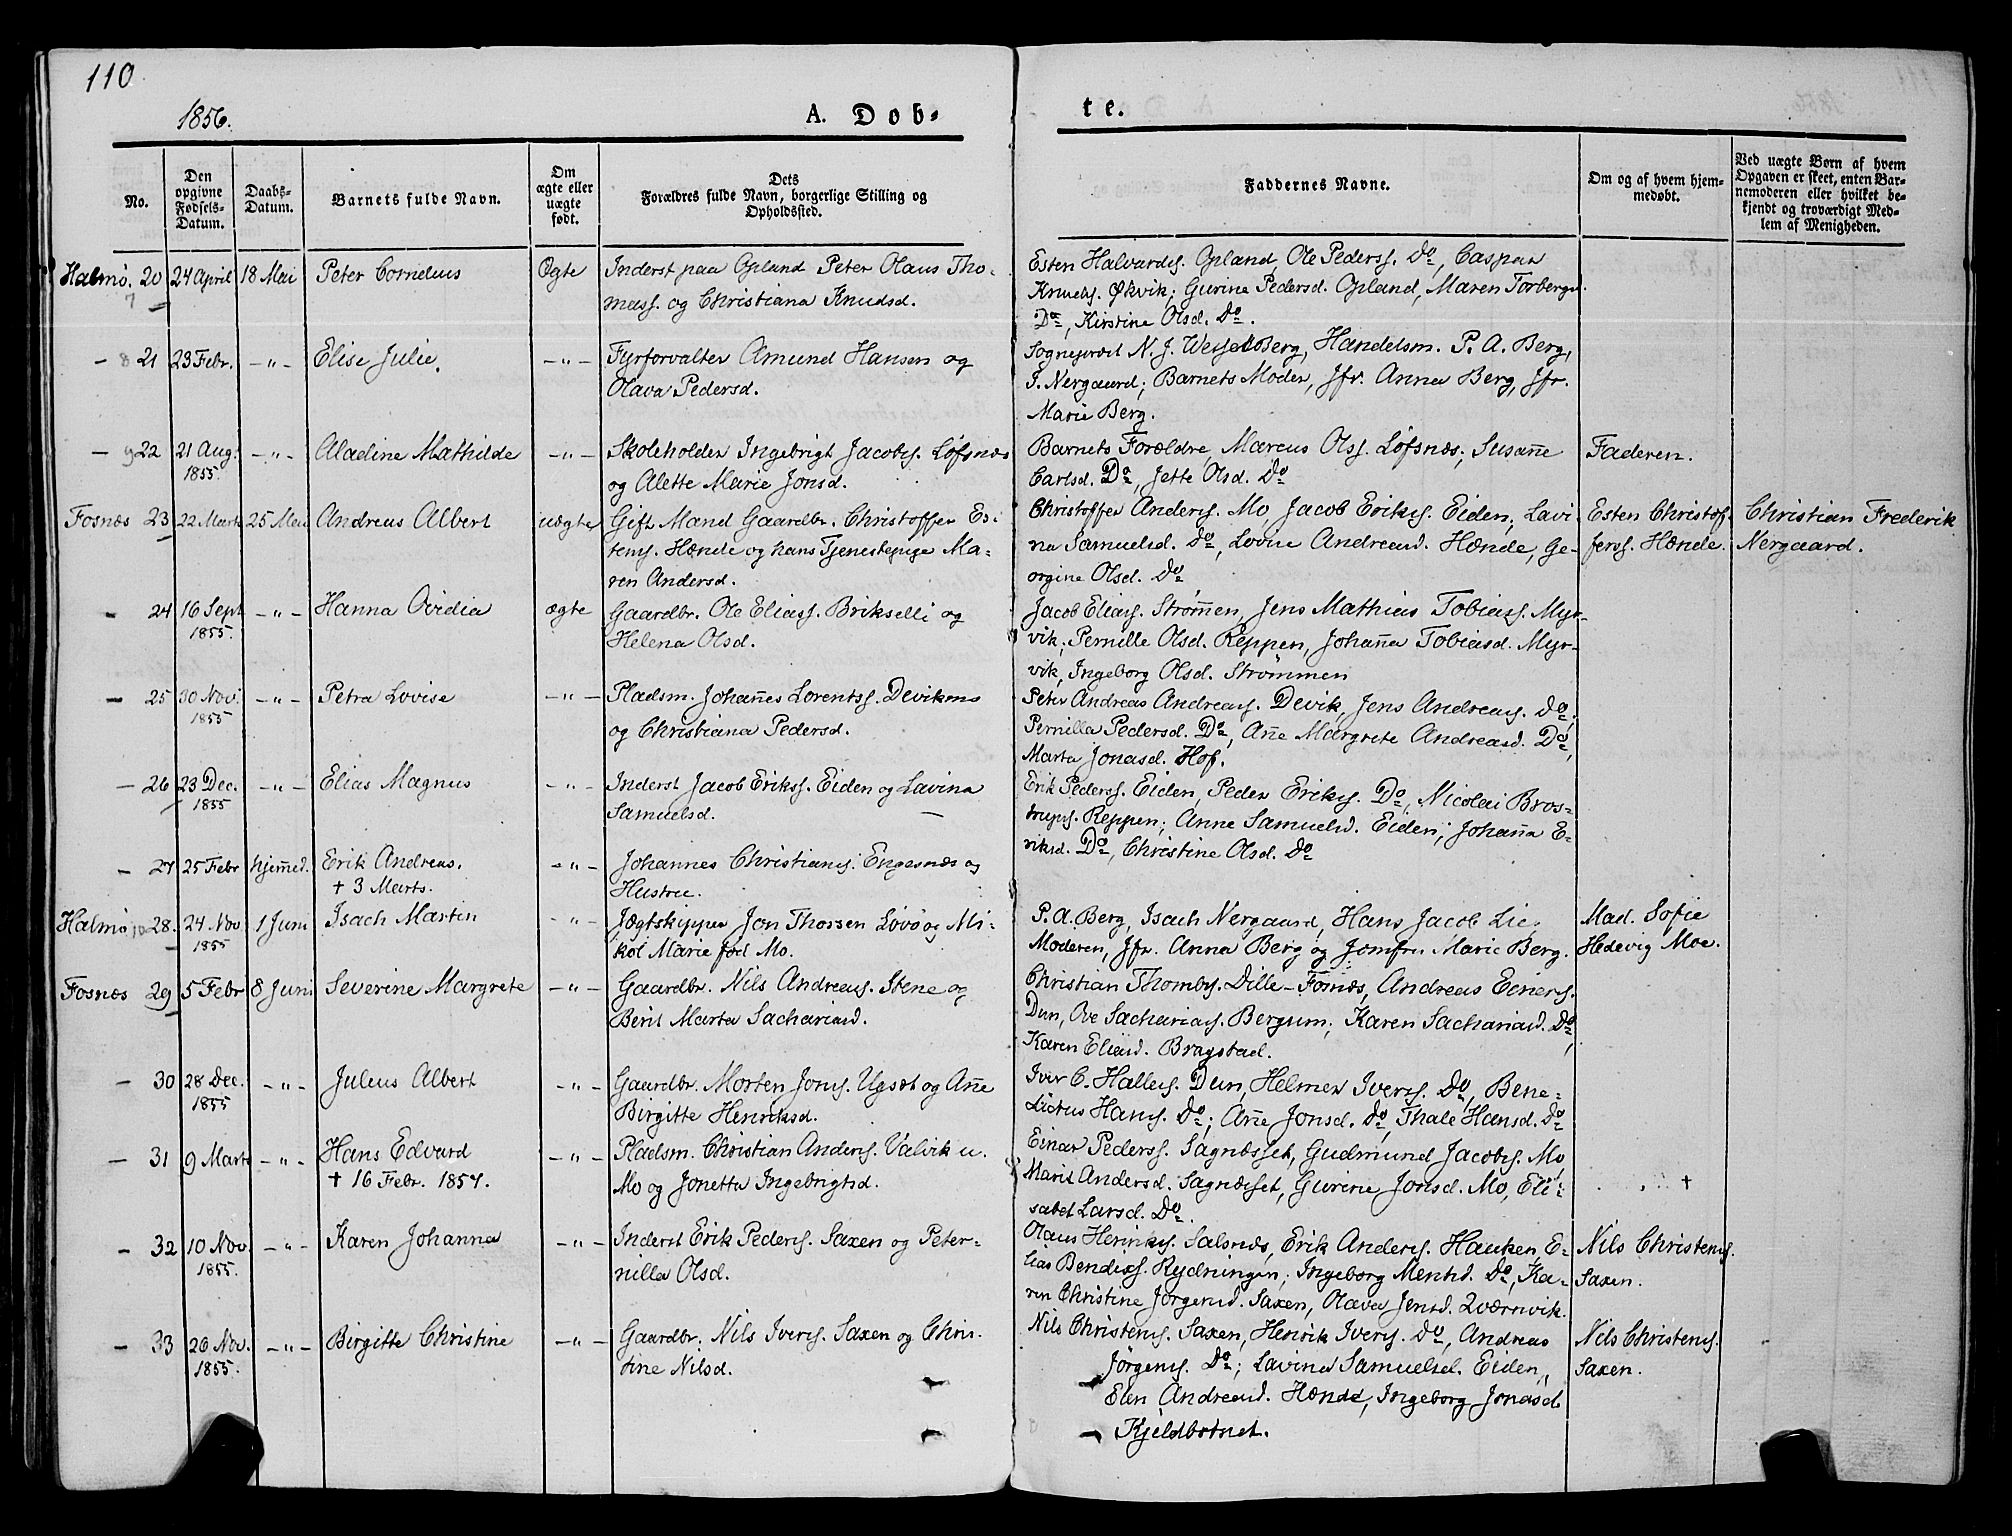 110
1856.
A. Døb-
te.
No.
Den opgivne Fødsels-Datum.
Daabs-Datum.
Barnets fulde Navn.
Om ægte eller uægte født.
Dets Forældres fulde Navn, borgerlige Stilling og Opholdssted.
Faddernes Navne.
Om og af hvem hjemmedøbt.
Ved uægte Børn af hvem Opgaven er skeet, enten Barnemoderen eller hvilket bekjendt og troværdigt Medlem af Menigheden.
Halmø. 20 24 April 18 Mai Peter Cornelius Ægte Inderst paa Opland Peter Olaus Tho-
7 mass. og Christiana Knudsd.
Esten Halvards. Opland, Ole Peders. Do, Caspar
Knuds. Økvik; Gurine Pedersd. Opland, Maren Torbergd.
Do, Kirstine Olsd. Do.
- 8 21 23 Febr. -"- Elise Julie. -"- Fyrforvalter Amund Hansen og
Olava Pedersd.
Sognepræst N. J. Wessel Berg, Handelsm. P. A. Berg,
I. Nergaard; Barnets Moder, Jfr. Anna Berg, Jfr.
Marie Berg.
- 9 22 21 Aug. -"- Aladine Mathilde -"- Skoleholder Ingebrigt Jacobs. Løfsnæs
1855. og Alette Marie Jonsd.
Barnets Forældre, Marcus Ols. Løfsnæs; Susanne Faderen.
Carlsd. Do, Jette Olsd. Do
Fosnæs 23 22 Marts 25 Mai Andreas Albert uægte Gift Mand Gaardbr. Christoffer Es-
tens. Hænde og hans Tjenestepige Ma-
ren Andersd.
Christoffer Anders. Mo, Jacob Eriks. Eiden; Lavi- Esten Christof- Christian Frederik
na Samuelsd. Do, Lovise Andreasd. Hænde, Ge- fers. Hænde. Nergaard.
orgine Olsd. Do
- 24 16 Sept -"- Hanna Ovidia ægte Gaardbr. Ole Elias. Brikselli og
1855. Helena Olsd.
Jacob Elias. Strømen, Jens Mathias Tobias. Myr-
vik; Pernille Olsd. Reppen, Johanna Tobiasd. Myr-
vik, Ingeborg Olsd. Strømmen
- 25 30 Nov. -"- Petra Lovise -"- Pladsm. Johannes Lorents. Devikens
1855 og Christiana Pedersd.
Peter Andreas Andreas. Devik, Jens Andreas. Do;
Pernilla Pedersd. Do, Ane Margrete Andreasd. Do,
Marta Jonasd. Hof.
- 26 23 Dec. -"- Elias Magnus -"- Inderst Jacob Eriks. Eiden og Lavina
1855 Samuelsd.
Erik Peders. Eiden, Peder Eriks. Do, Nicolai Bros-
trups. Reppen; Anne Samuelsd. Eiden; Johanna E-
riksd. Do, Christine Olsd. Do
- 27 25 Febr hjemmed. Erik Andreas. -"- Johannes Christians. Engesnæs og
+ 3 Marts. Hustru.
Halmø 10 28. 24 Nov 1 Juni Isach Martin -"- Jægtskipper Jon Thorsen Løvø og Ni-
1855 kol Marie fød Mo.
P. A. Berg, Isach Nergaard, Hans Jacob Lie. Mad. Sofie
Moderen, Jfr. Anna Berg og Jomfru Marie Berg. Hedevig Moe.
Fosnæs 29 5 Febr 8 Juni Severine Margrete -"- Gaardbr. Nils Andreas. Stene og
Berit Marta Sachariasd.
Christian Thombs. Dille-Fosnæs, Andreas Einers.
Dun, Ove Sacharias. Bergum; Karen Sachariasd. Do,
Karen Eliasd. Bragstad.
- 30 28 Dec. -"- Julius Albert -"- Gaardbr. Morten Jons. Ugsæt og Ane
1855 Birgitte Henriksd.
Iver C. Halles. Dun, Helmer Ivers. Do, Bene-
dictus Hans. Do; Ane Jonsd. Do, Thale Hansd. Do
- 31 9 Marts -"- Hans Edvard -"- Pladsm. Christian Anders. Valvik u.
+ 16 Febr. 1857. Mo og Jonetta Ingebrigtsd.
Einar Peders. Sagnæsset, Gudmund Jacobs. Mo,
Marit Andersd. Sagnæsset, Gurine Jonsd. Mo, Eli- +
sabet Larsd. Do.
- 32 10 Nov. -"- Karen Johanna -"- Inderst Erik Peders. Saxen og Peter-
1855. nilla Olsd.
Olaus Henriks. Salsnæs, Erik Anders. Hauken, E- Nils Christens.
lias Bendix. Rydningen; Ingeborg Mentsd. Do, Ka- Saxen.
ren Christine Jørgensd. Saxen, Olava Jensd. Qværnvik.
- 33 26 Nov. -"- Birgitte Christine -"- Gaardbr. Nils Ivers. Saxen og Chris-
1855. tine Nilsd.
Nils Christens. Saxen, Henrik Ivers. Do, Andreas Nils Christens.
Jörgens. Do; Lavina Samuelsd. Eiden, Saxen.
Elen Andreasd. Hænde, Ingeborg Jonasd
Kjeldbotnet.